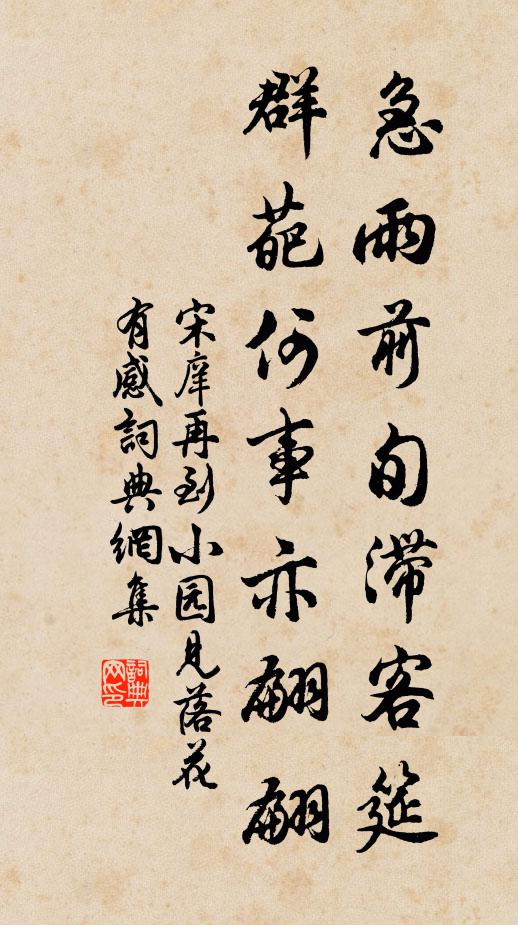 急雨前旬滞客筵
群葩何事亦翩翩
宋庠再到小园見落花
有感詞典網集
詞典网印